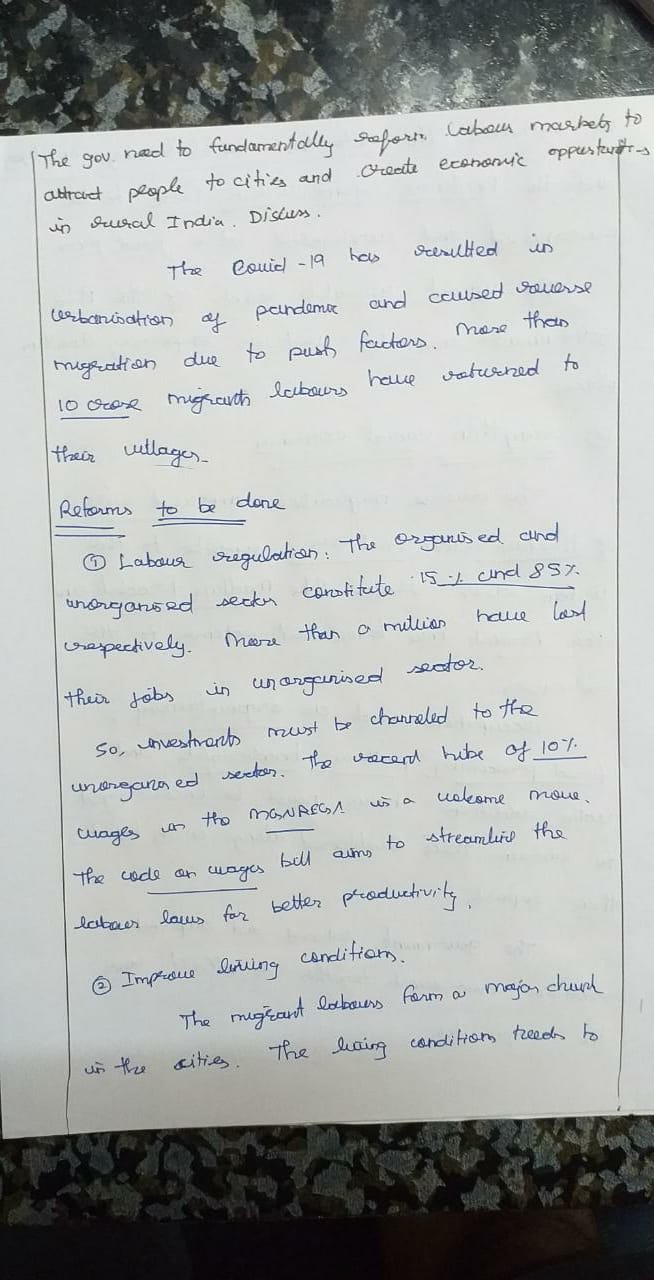 The gov. need to fundamentally reform labour markets to
attract people to cities and create economic
in rural India. Discuss.
The Covid-19 has resulted in
urbanisation of pandemic and caused reverse
migration due to push factors. More than
10 crore migrants labours have returned to
their villages.
Reforms to be done
① Labour regulation: The organised and
unorganised sector constitute 15% and 85%
respectively. More than a million have lost
their jobs in unorganised sector.
So, investments must be channeled to the
unorganised sector. The recent hike of 10%
wages in the MGNREGA is a welcome move.
The code on wages bill aims to streamline the
labour laws for better productivity.
② Improve living conditions.
The migrant labours form a major chunk
in the cities. The living conditions needs to